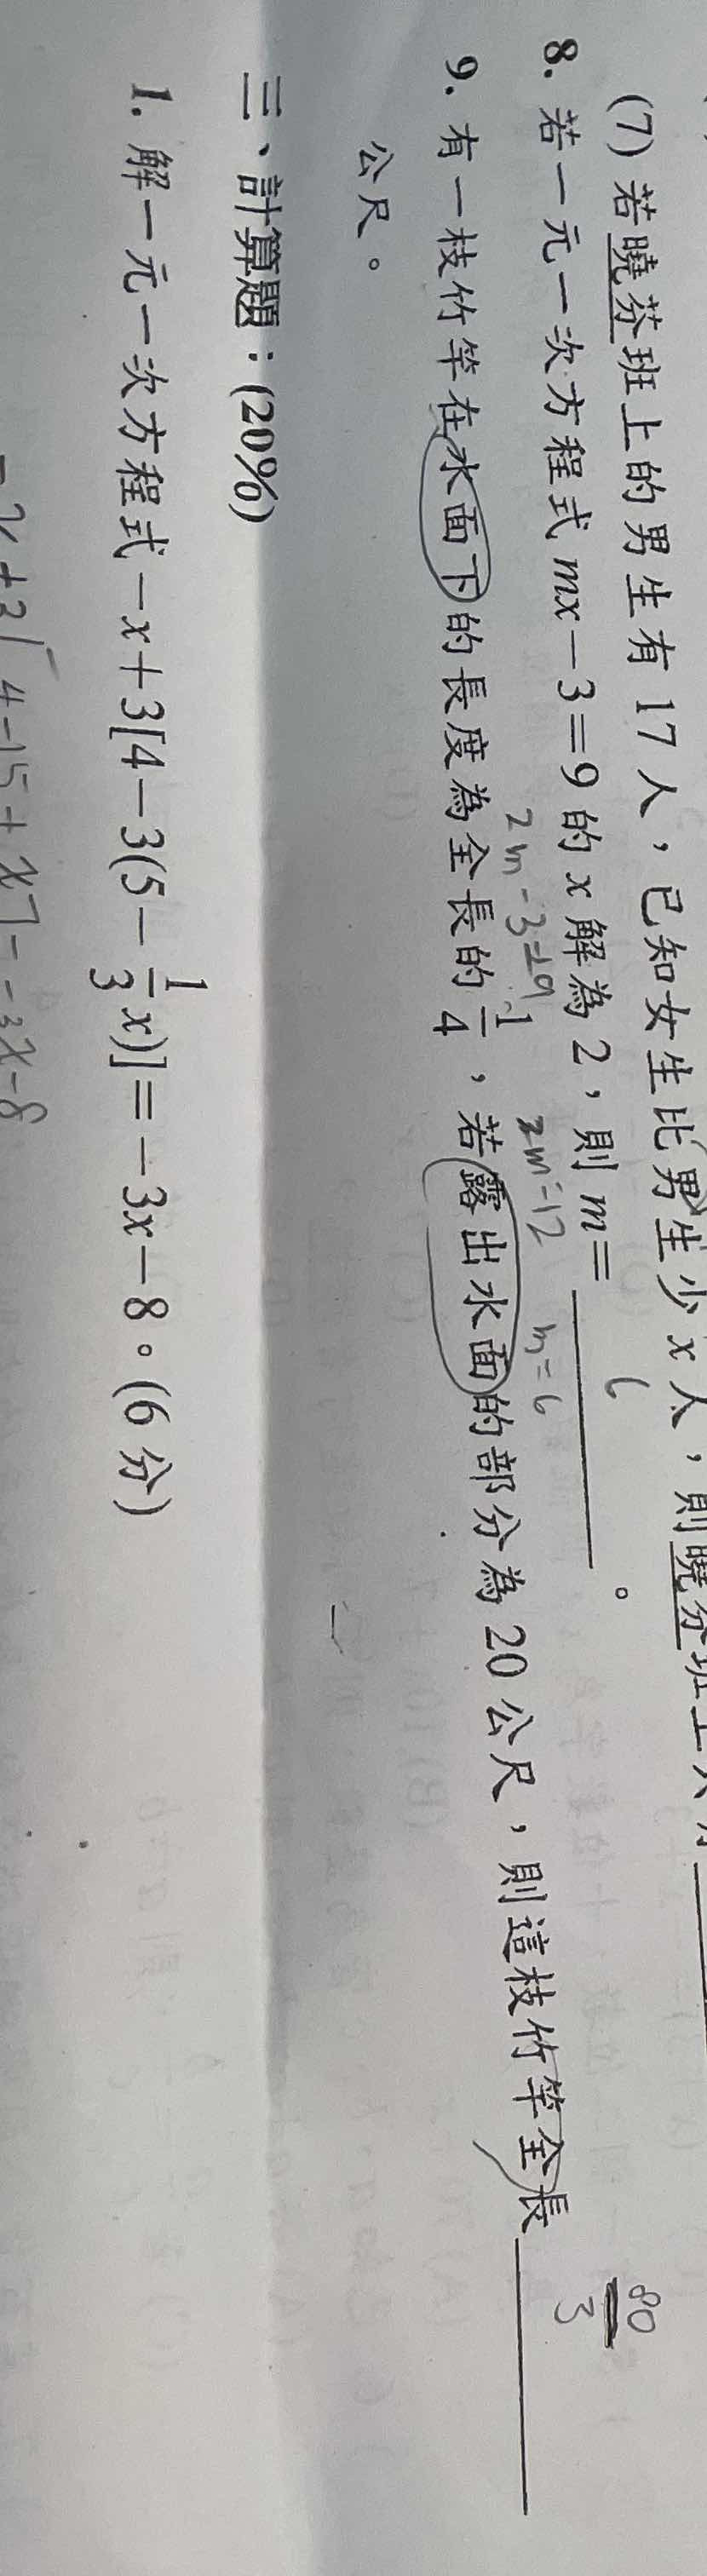 (7) 若曉芬班上的男生有 17 人，已知女生比男生少 x 人，則曉芬班上
8. 若一元一次方程式 mx－3＝9 的 x 解為 2，則 m＝ 6 。
2m-3=9 2m=12 m=6
9. 有一枝竹竿在水面下的長度為全長的 1/4，若露出水面的部分為 20 公尺，則這枝竹竿全長 80/3
公尺。
三、計算題：(20%)
1. 解一元一次方程式－x＋3[4－3(5－1/3x)]＝－3x－8。(6 分)
-x+3[4-15+x]=-3x-8